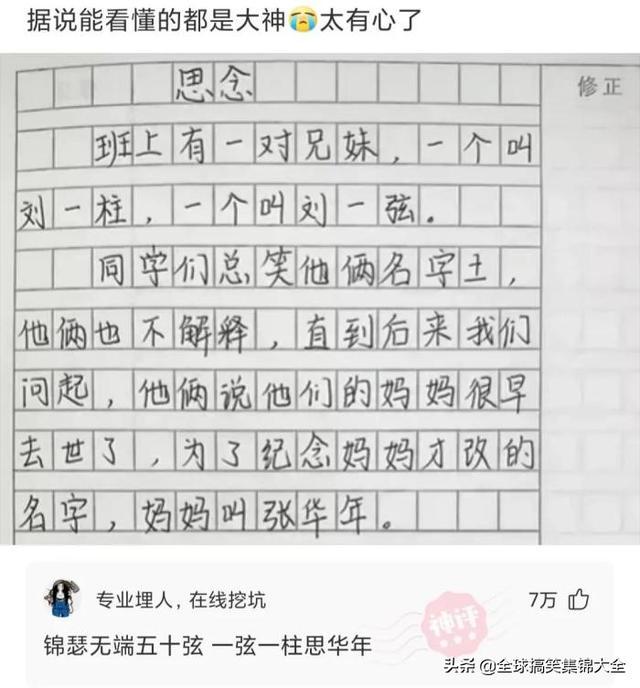 据说能看懂的都是大神😭太有心了
思念
修正
班上有一对兄妹，一个叫
刘一柱，一个叫刘一弦。
同学们总笑他俩名字土，
他俩也不解释，直到后来我们
问起，他俩说他们的妈妈很早
去世了，为了纪念妈妈才改的
名字，妈妈叫张华年。
专业埋人，在线挖坑
7万
神评
锦瑟无端五十弦 一弦一柱思华年
头条 @全球搞笑集锦大全